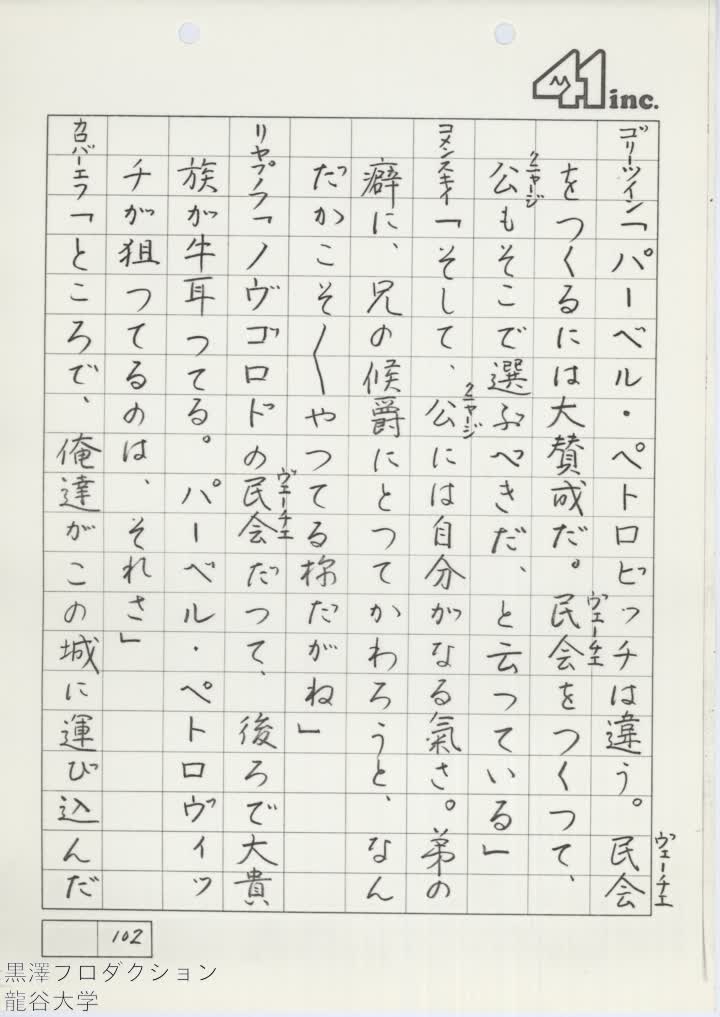 41 inc.
ゴリーツイン「パーベル・ペトロビッチは違う。民会
ヴェーチェ
をつくるには大賛成だ。民会をつくつて、
ヴェーチェ
公もそこで選ぶべきだ、と云つている」
クニャージ
コメンスキイ「そして、公には自分がなる氣さ。弟の
クニャージ
癖に、兄の候爵にとつてかわろうと、なん
だかこそ〱やつてる様だがね」
リャプノフ「ノヴゴロドの民会だつて、後ろで大貴
ヴェーチェ
族が牛耳つてる。パーベル・ペトロヴィッ
チが狙つてるのは、それさ」
カローバーエフ「ところで、俺達がこの城に運び込んだ
102
黒澤プロダクション
龍谷大学